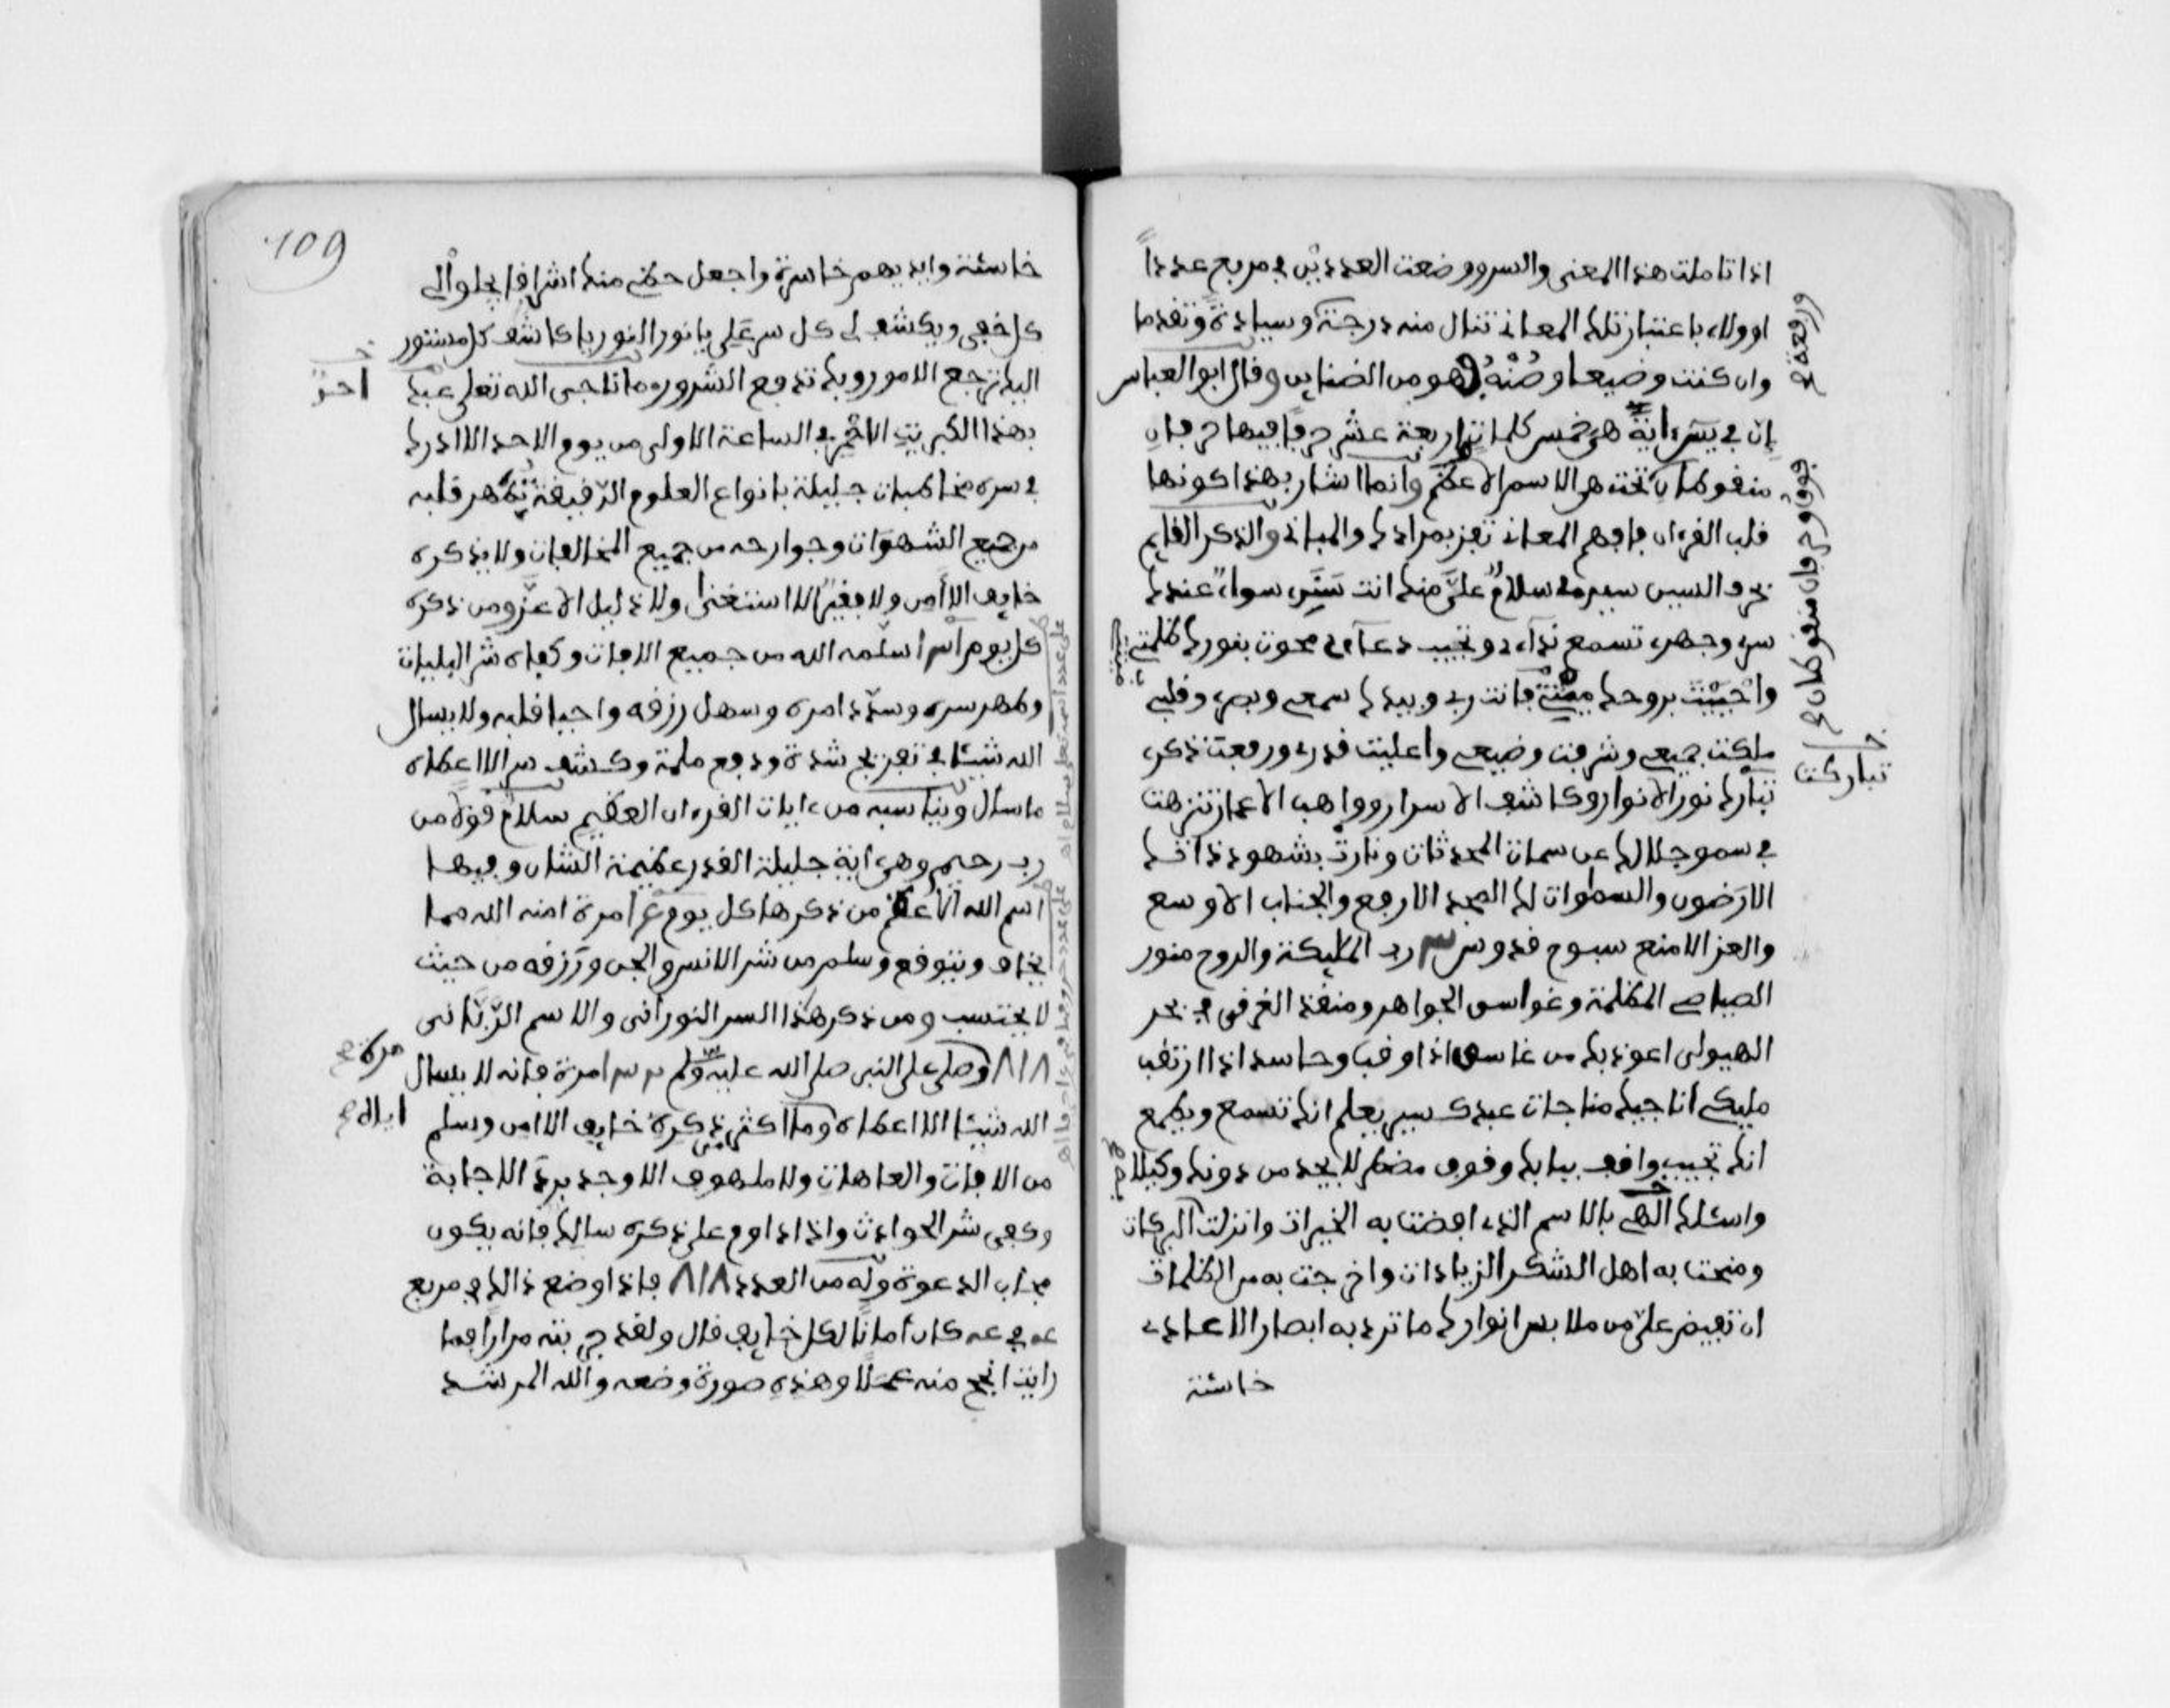 اذا تاملت هذا المعنى والسر ووضعت العددين في مربع عددا
او ولاء باعتبار تلك المعاني تنال منه درجة وسيادة وتقدما
ورفعة صح
وان كنت وضيعا وصنه فهو من الضنائن وقال ابو العباس
ان في يس اية هي خمس كلمات اربعة عشر حرفا فيها حرفان
منقوطان تحت هي الاسم الاعظم وانما اشار بهذا كونها
فوق وحرفان منقوطان صح
قلب القرءان فافهم المعاني تفز بمرادك والمباني والذكر القايم
بحرف السين سيدي سلام علي منك انت سندي سواء عندك
سري وجهري تسمع نداءي وتجيب دعاءي محوت بنورك ظلمتي
واحييت بروحك ميتتي فانت ربي وبيدك سمعي وبصري وقلبي
ملكت جميعي وشرفت وضيعي واعليت قدري ورفعت ذكري
تباركت
تبارك نور الانوار وكاشف الاسرار وواهب الاعمار تنزهت
في سمو جلالك عن سمات المحدثات ونارت بشهود ذاتك
الارضون والسموات لك المجد الارفع والجناب الاوسع
والعز الامنع سبوح قدوس رب المليكة والروح منور
الصياصي المظلمة وغواسق الجواهر ومنقذ الغرقى في بحر
الهيولى اعوذ بك من غاسق اذا وقب وحاسد اذا ارتقب
مليكي اناجيك مناجات عبدك سير يعلم انك تسمع ويطمع
انك تجيب واقف ببابك وقوف مضطر لا يجد من دونك وكيلا
واسئلك الهي بالاسم الذي افضت به الخيرات وانزلت البركات
ومنحت به اهل الشكر الزيادات واخرجت به من الظلمات
ان تفيض علي من ملابس انوارك ما ترد به ابصار الاعادي
خاسئة
109
خاسئة وايديهم خاسرة واجعل حظي منك اشراقا يجلو لي
كل خفي ويكشف لي كل سر علي يا نور النور يا كاشف كل مستور
اليك ترجع الامور وبك تدفع الشرور وما ناجى الله تعلى عبد
احد
بهذا الكبريت الاحمر في الساعة الاولى من يوم الاحد الا ادرك
في سره مخاطبات جليلة بانواع العلوم الدقيقة تطهر قلبه
من جميع الشهوات وجوارحه من جميع المخالفات ولا يذكره
خايف الا امن ولا فقير الا استغنى ولا ذليل الا عز ومن ذكره
كل يوم اسلمه الله من جميع الافات وكفاه شر البليات
وطهر سره وسدد امره وسهل رزقه واحيا قلبه ولا يسال
الله شيئا في تفريج شدة ودفع ملمة وكشف سر الا اعطاه
ما سال ويناسبه من ءايات القرءان العظيم سلام قولا من
رب رحيم وهي اية جليلة القدر عظيمة الشان وفيها
اسم الله الاعظم من ذكرها كل يوم مرة امنه الله مما
يخاف ويتوقع وسلم من شر الانس والجن ورزقه من حيث
لا يحتسب ومن ذكر هذا السر النوراني والاسم الرباني
٨١٨ وصلى على النبي صلى الله عليه وسلم مرة فانه لا يسال
مرة صح
الله شيئا الا اعطاه وما اكثر ذكره خايف الا امن وسلم
من الافات والعاهات ولا ملهوف الا وجد برد الاجابة
وكفي شر الحوادث واذا داوم على ذكره سالك فانه يكون
مجاب الدعوة وله من العدد ٨١٨ فاذا وضع ذالك في مربع
كان امانا لكل خايف قال ولقد جربته مرارا فما
رايت انجح منه عملا وهذه صورة وضعه والله المرشد